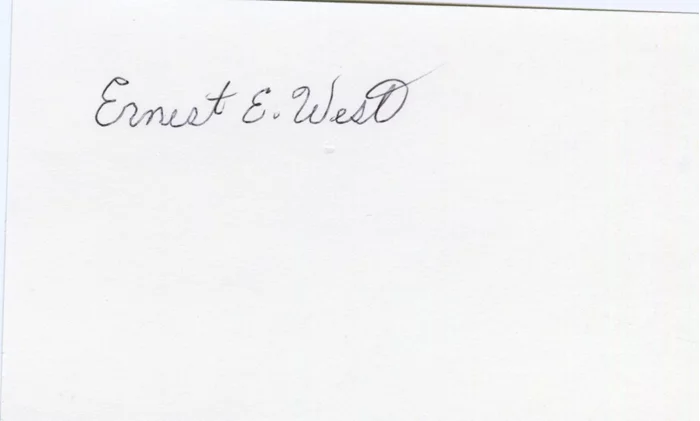 Ernest E. West